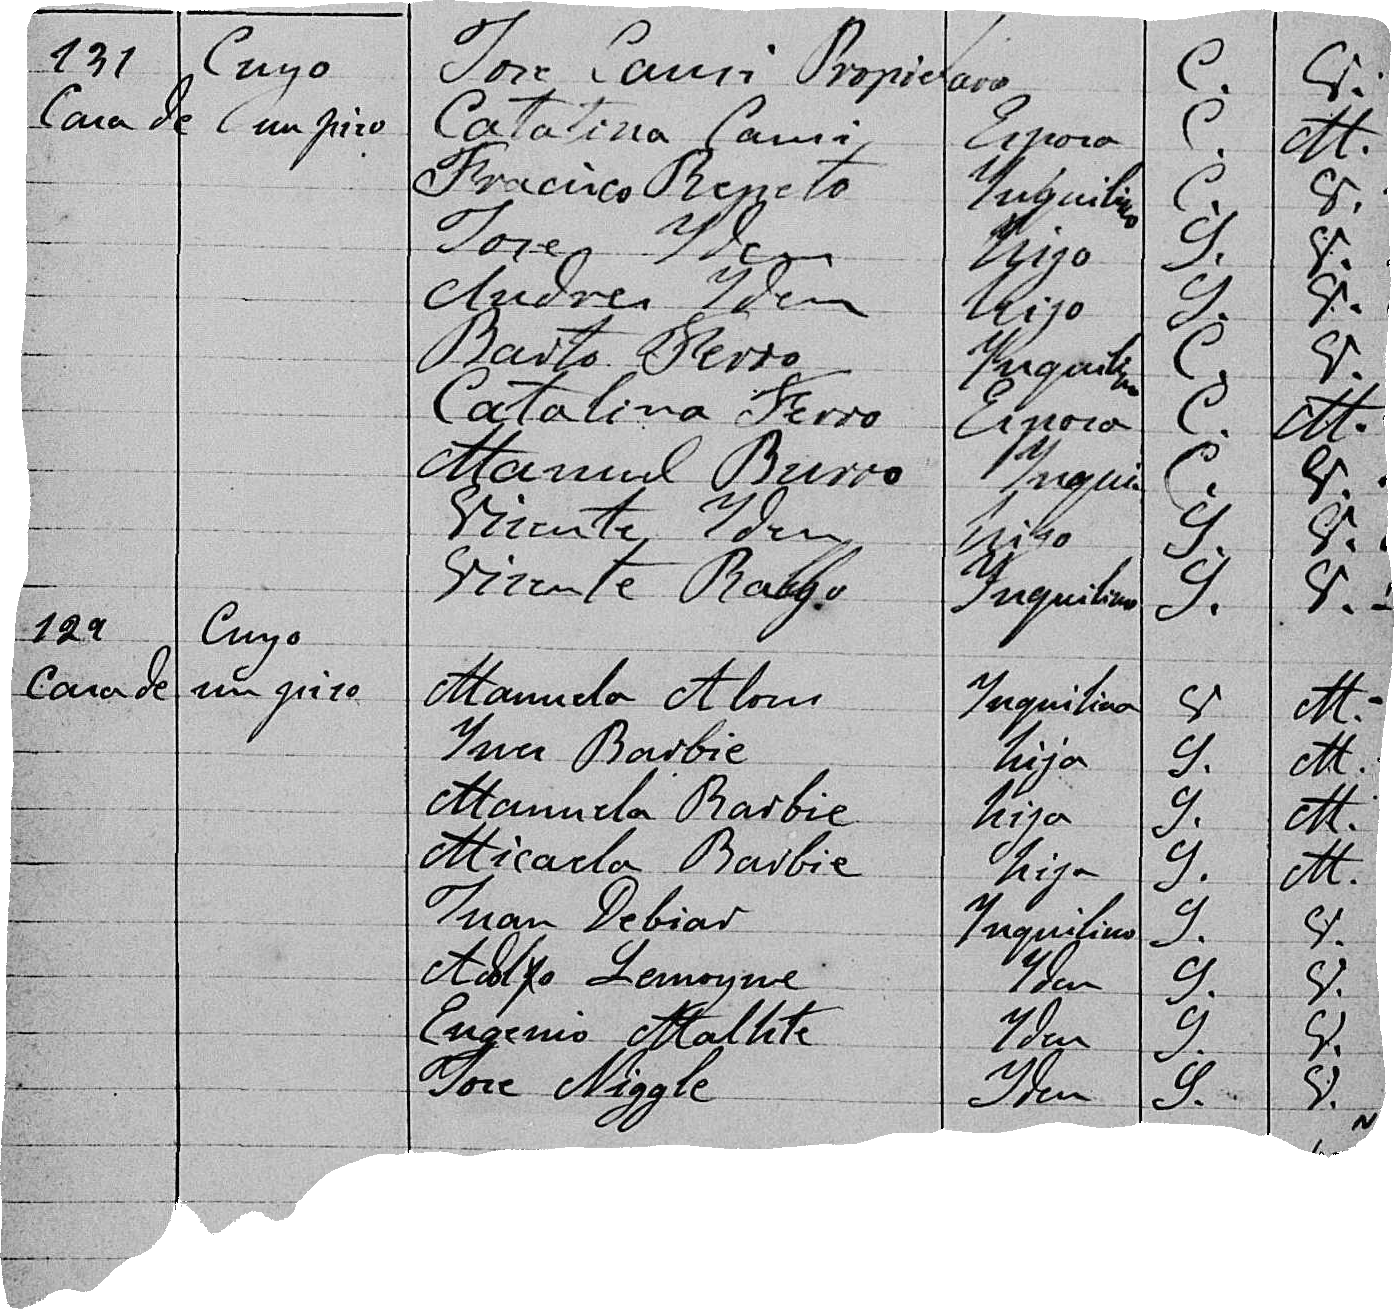 131 Cuyo Jose Cansi Propietario C. V.
Casa de un piso Catalina Cansi Esposa C. M.
Fracisco Repeto Ynquilino C. V.
Jose Ydem hijo S. V.
Andres Ydem hijo S. V.
Barto Ferro Ynquilino C. V.
Catalina Ferro Esposa C. M.
Manuel Burro Ynquin C. V.
Vicente Ydem hijo S. V.
Vicente Ynquilino S. V.
129 Cuyo
Casa de un piso Manuela Alons Ynquilina V M.
Ynes Barbie hija S. M.
Manuela Barbie hija S. M.
Micaela Barbie hija S. M.
Juan Debiar Ynquilino S. V.
Adolfo Lemoyne Ydem S. V.
Eugenio Mallete Ydem S. V.
Jose Niggle Ydem S. V.